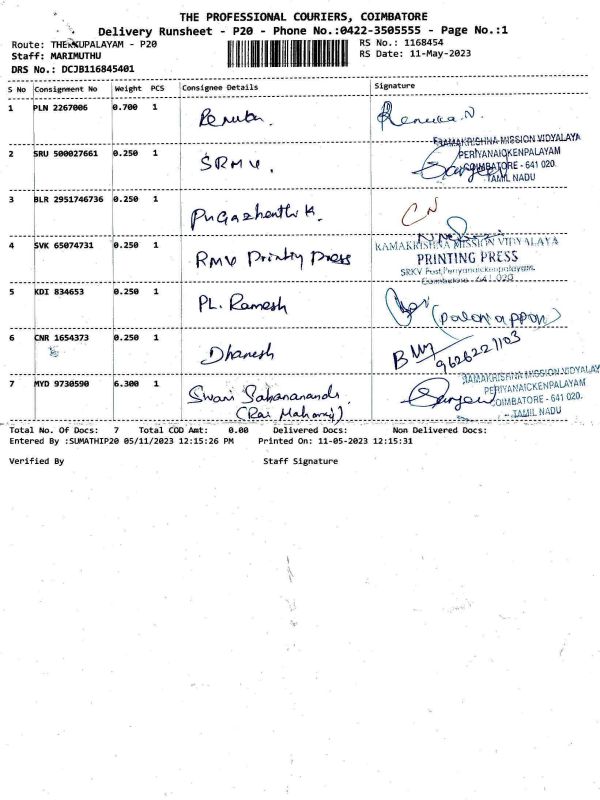 THE PROFESSIONAL COURIERS, COIMBATORE
Delivery Runsheet - P20 - Phone No.:0422-3505555 - Page No.:1
Route: THEKKUPALAYAM - P20
RS No.: 1168454
Staff: MARIMUTHU
RS Date: 11-May-2023
DRS No.: DCJB116845401
S No Consignment No Weight PCS Consignee Details Signature
1 PLN 2267006 0.700 1 Renuka. Renuka.N.
RAMAKRISHNA MISSION VIDYALAYA
PERIYANAICKENPALAYAM
2 SRU 500027661 0.250 1 SRMV.
COIMBATORE - 641 020.
TAMIL NADU
3 BLR 2951746736 0.250 1 Pugazhenthi K. CN
4 SVK 65074731 0.250 1 RMV Printing Press
RAMAKRISHNA MISSION VIDYALAYA
PRINTING PRESS
SRKV Post, Periyanaickenpalayam,
Coimbatore - 641 020
5 KDI 834653 0.250 1 PL. Ramesh
6 CNR 1654373 0.250 1 Dhanesh 9626221103
7 MYD 9730590 6.300 1 Swami
(Raj Maharaj)
RAMAKRISHNA MISSION VIDYALAYA
PERIYANAICKENPALAYAM
COIMBATORE - 641 020.
TAMIL NADU
Total No. Of Docs: 7 Total COD Amt: 0.00 Delivered Docs: Non Delivered Docs:
Entered By :SUMATHIP20 05/11/2023 12:15:26 PM Printed On: 11-05-2023 12:15:31
Verified By Staff Signature